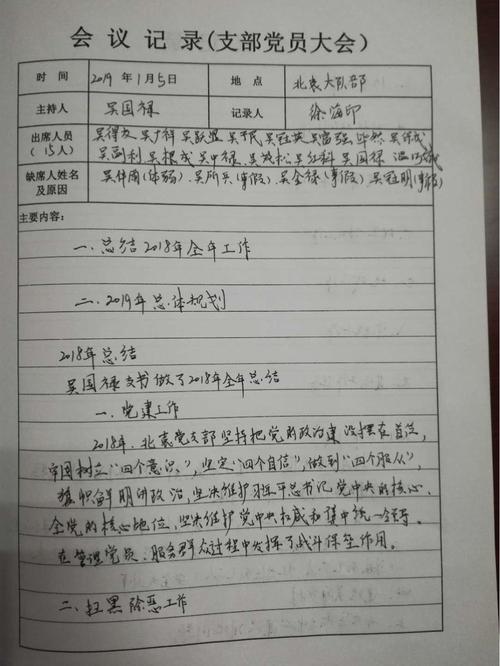 会议记录(支部党员大会)
时间 2019年1月5日 地点 北袁大队部
主持人 吴国禄 记录人 徐海印
出席人员 吴得友 吴广科 吴跃盟 吴平民 吴冠英 吴富强 毕然
(15人) 吴副利 吴根成 吴中禄 吴成松 吴红科 吴国禄
缺席人姓名 吴伴周(体弱)、吴所兴(事假)、吴全禄(事假)、吴冠明(事假)
及原因
主要内容:
一、总结2018年全年工作
二、2019年总体规划
2018年总结
吴国禄支书做了2018年全年总结
一、党建工作
2018年,北袁党支部坚持把党的政治建设摆在首位,
牢固树立"四个意识",坚定"四个自信",做到"四个服从",
旗帜鲜明讲政治,坚决维护习近平总书记党中央的核心、
全党的核心地位,坚决维护党中央权威和集中统一领导。
在管理党员、服务群众过程中发挥了战斗堡垒作用。
二、扫黑除恶工作